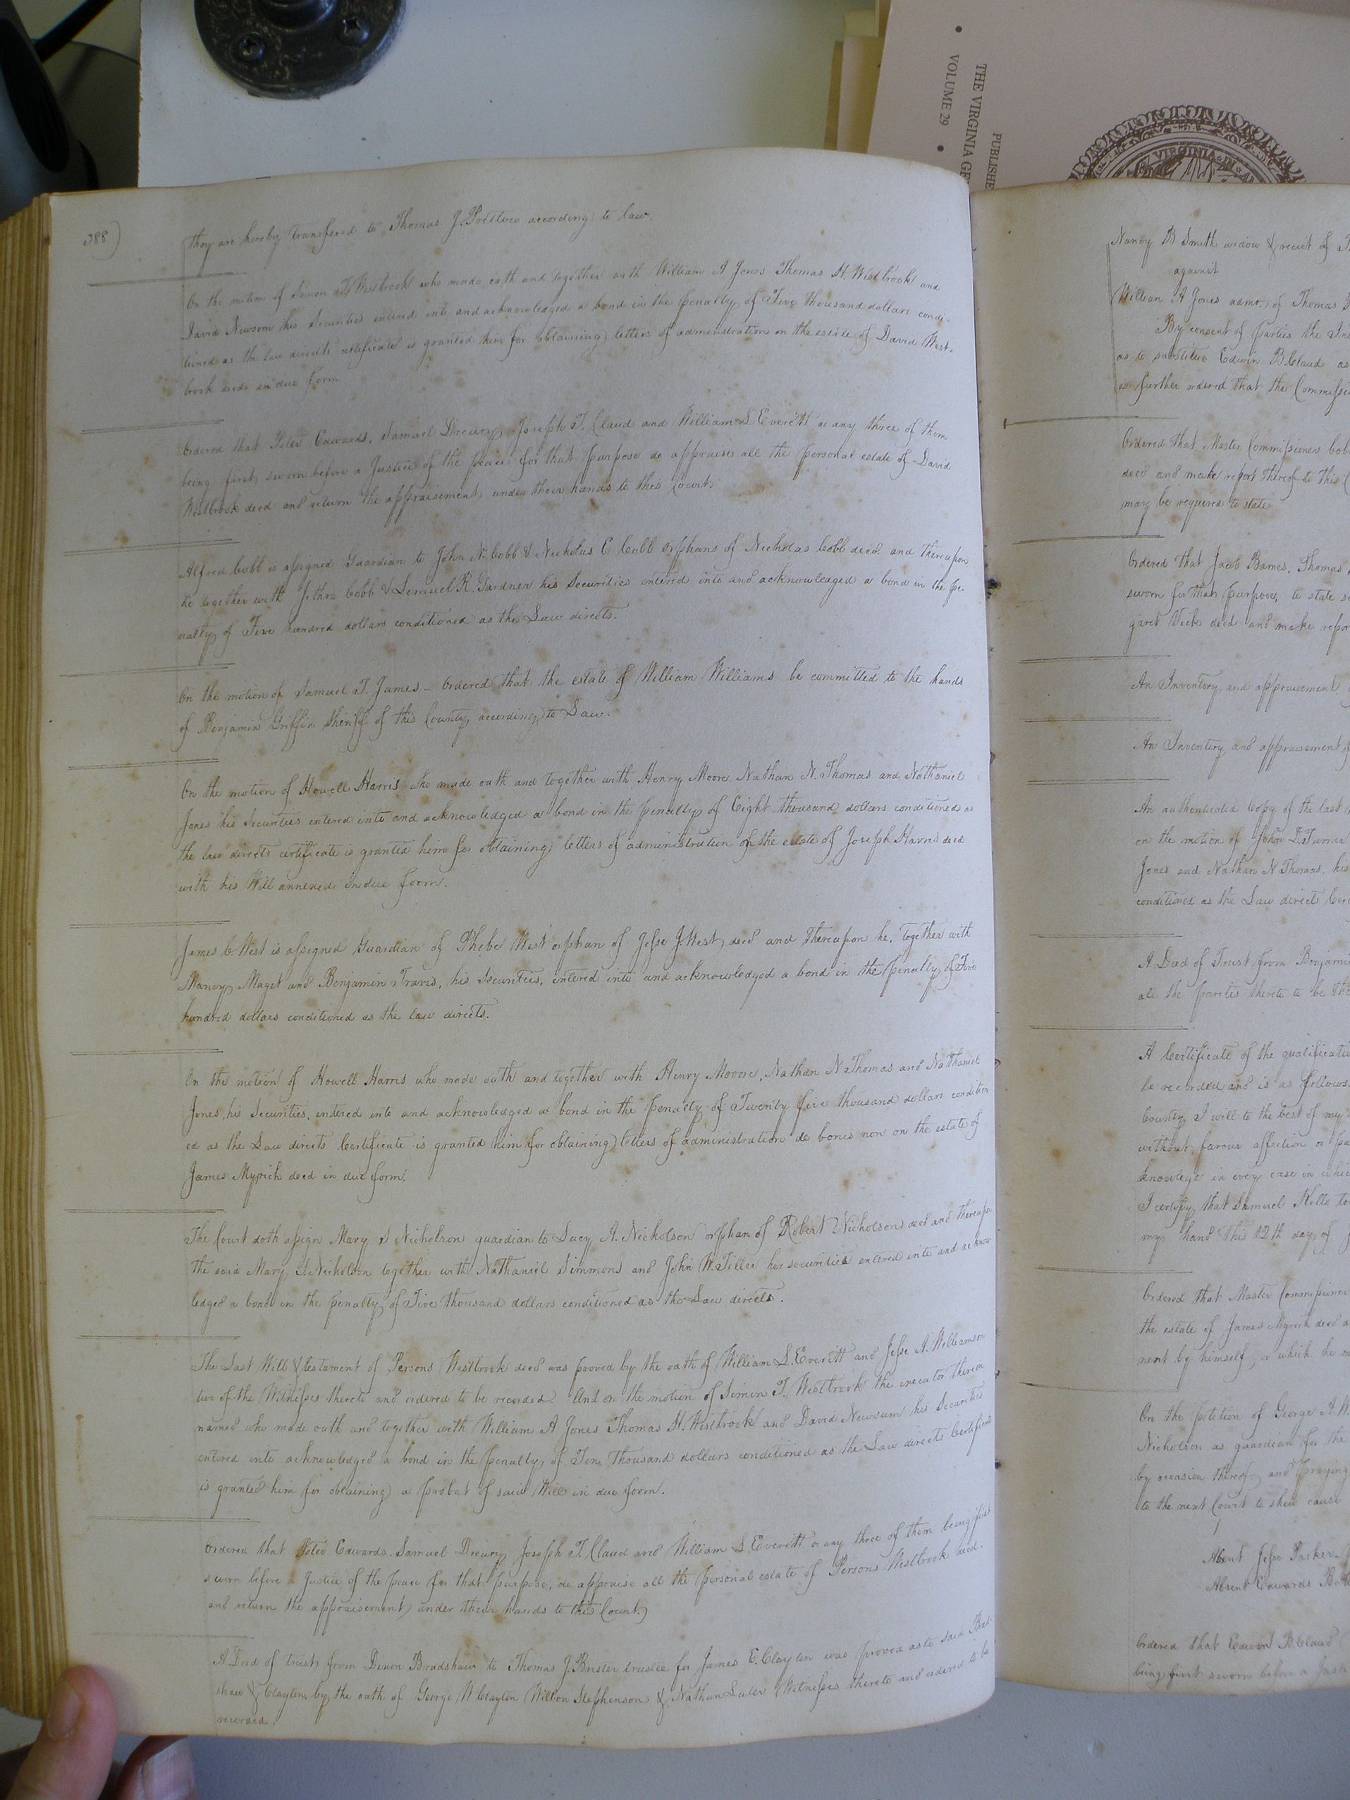 THE VIRGINIA GE
VOLUME 29
PUBLISHE
VIRGINIA IN A
388)
they are hereby transfered to Thomas J. Pretlow according to law.
On the motion of Simon T Westbrook who made oath and together with William A Jones Thomas H. Westbrook and
David Newsom his Securities entered into and acknowledged a bond in the penalty of Five thousand dollars condi-
tioned as the law directs certificate is granted him for obtaining letters of administration on the estate of David West-
brook decd in due form
Ordered that Peter Edwards, Samuel Drewry, Joseph T. Claud and William S Everitt or any three of them
being first sworn before a Justice of the peace for that purpose do appraise all the personal estate of David
Westbrook decd and return the appraisement, under their hands to this Court.
Alfred Cobb is assigned Guardian to John N. Cobb & Nicholas C Cobb orphans of Nicholas Cobb decd and thereupon
he together with Jethro Cobb & Lemuel R. Gardner his Securities entered into and acknowledged a bond in the pe-
nalty of Five hundred dollars conditioned as the Law directs.
On the motion of Samuel T. James - Ordered that the estate of William Williams be committed to the hands
of Benjamin Griffin Sheriff of this County according to Law.
On the motion of Howell Harris who made oath and together with Henry Moore, Nathan N. Thomas and Nathaniel
Jones his Securities entered into and acknowledged a bond in the penalty of Eight thousand dollars conditioned as
the law directs certificate is granted him for obtaining letters of administration of the estate of Joseph Harris decd
with his Will annexed in due form.
James C West is assigned Guardian of Phebe West orphan of Jesse J. West, decd and thereupon he, together with
Maget and Benjamin Travis, his Securities, entered into and acknowledged a bond in the penalty of Five
hundred dollars conditioned as the law directs.
On the motion of Howell Harris who made oath and together with Henry Moore, Nathan N Thomas and Nathaniel
Jones, his Securities, entered into and acknowledged a bond in the penalty of Twenty five thousand dollars condition
ed as the Law directs Certificate is granted him for obtaining letters of administration de bonis non on the estate of
James Myrick decd in due form.
The Court doth assign Mary S Nicholson guardian to Lucy A. Nicholson orphan of Robert Nicholson decd and thereupon
the said Mary S. Nicholson together with Nathaniel Simmons and John W. Tiller her securities entered into and acknow
ledged a bond in the penalty of Five thousand dollars conditioned as the Law directs.
The Last Will & testament of Persons Westbrook decd was proved by the oath of William S. Everitt and Jesse A. Williamson
two of the Witnesses thereto and ordered to be recorded And on the motion of Simon T. Westbrook the executor therein
named who made oath and together with William A Jones Thomas H. Westbrook and David Newsum his Securities
entered into acknowledged a bond in the penalty of Ten Thousand dollars conditioned as the Law directs Certificate
is granted him for obtaining a probat of said Will in due form.
Ordered that Peter Edwards, Samuel Drewry, Joseph T. Claud and William S. Everitt or any three of them being first
sworn before a Justice of the peace for that purpose, do appraise all the personal estate of Persons Westbrook decd.
and return the appraisement, under their hands to this Court.
A Deed of trust, from Dixon Bradshaw to Thomas J. Pretlow trustee for James E. Clayton was proved as to said Brad-
shaw & Clayton by the oath of George W Clayton Wilson Stephenson & Nathan Lawler Witnesses thereto and ordered to be
recorded.
Nancy B Smith widow & relict of T
against
William A Jones admr. of Thomas
By consent of parties the
as to substitute Edwin B. Claud as
is further ordered that the Commissi
Ordered that Master Commissioner Cobb
decd and make report thereof to this C
may be required to state
Ordered that Jacob Barnes, Thomas
sworn for that purpose, to state
garet Vick decd and make repor
An Inventory and appraisement
An Inventory and appraisement
An authenticated copy of the last
on the motion of John D. Turner
Jones and Nathan N Thomas, his
conditioned as the Law directs Cer
A Deed of Trust from Benjamin
all the parties thereto to be
A Certificate of the qualificatio
be recorded and is as follows
County, I will to the best of my
without favour affection or pa
knowledge in every case in which
I certify that Samuel Kello
my hand this 12th day of J
Ordered that Master Commissioner
the estate of James Myrick decd
ment by himself, or which he
On the petition of George A W
Nicholson as guardian for the
by occasion thereof, and praying
to the next Court to shew cause
Absent Jesse Parker
Absent Edwards
Ordered that Edwin B. Claud
being first sworn before a Justi